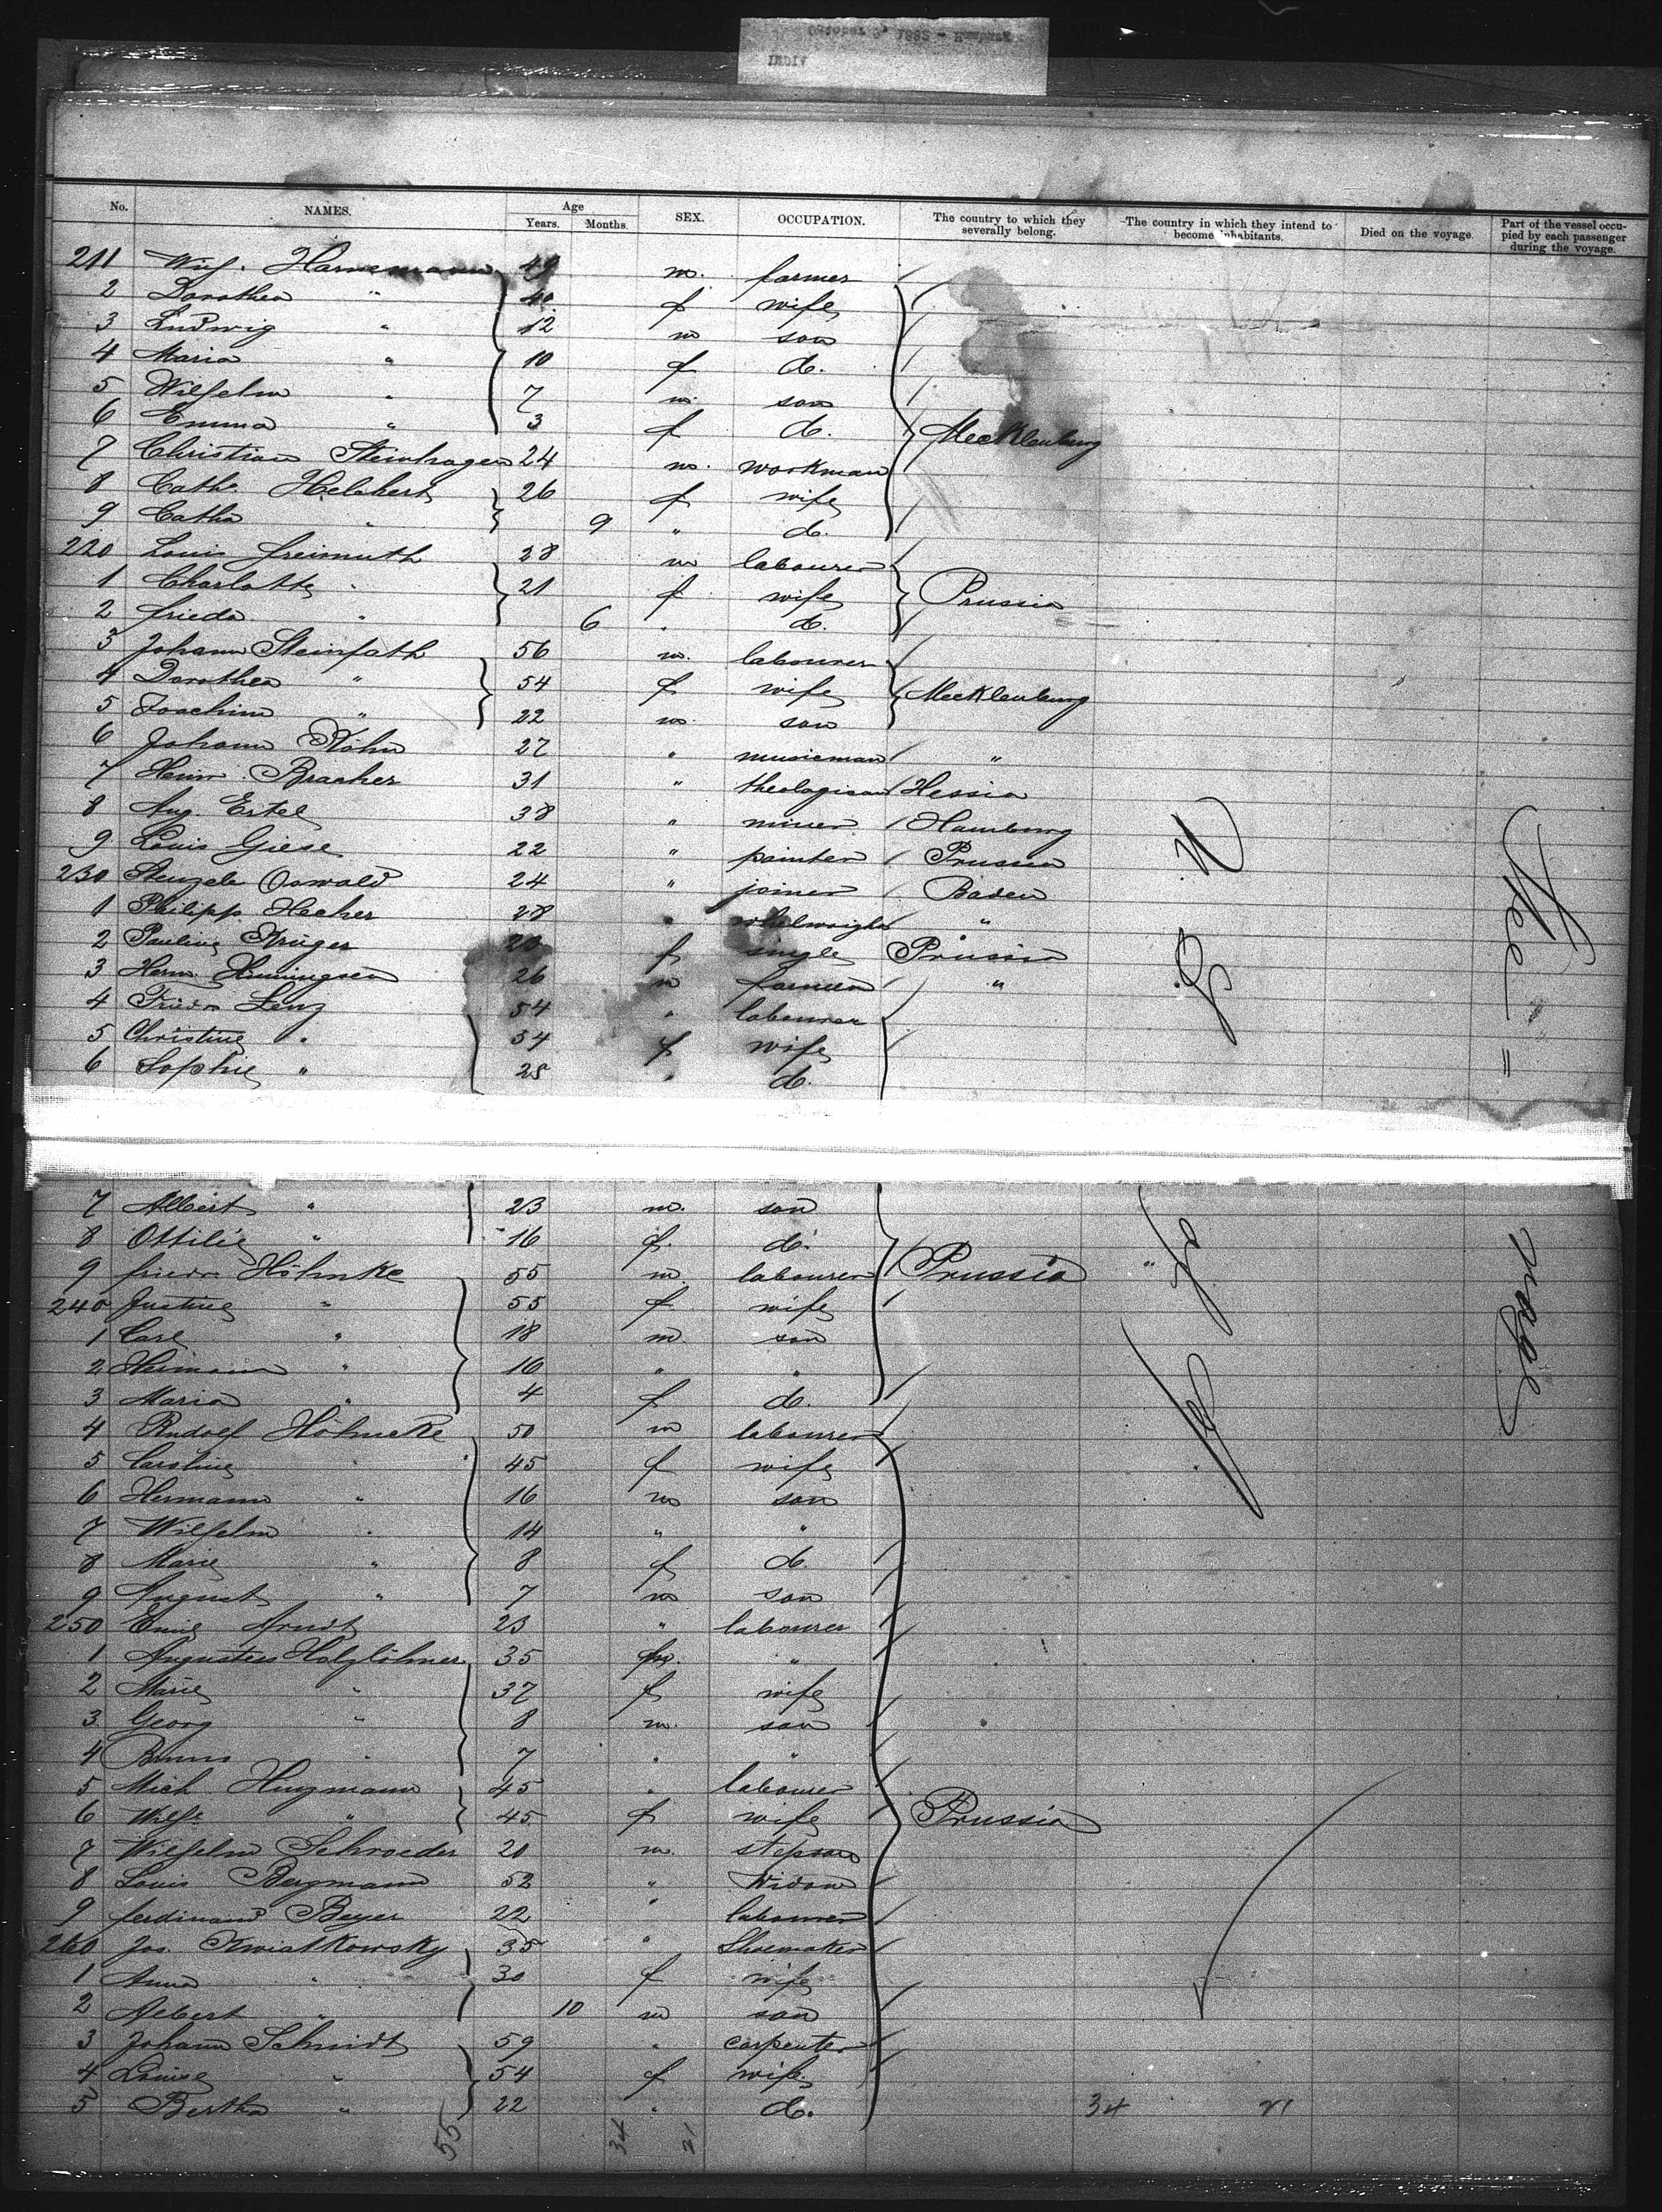 October 3, 1882 - Hamburg
INDIV
No. NAMES. Age Years. Months. SEX. OCCUPATION. The country to which they severally belong. The country in which they intend to become inhabitants. Died on the voyage. Part of the vessel occupied by each passenger during the voyage.
211 49 m. farmer
2 Dorothea " 40 f wife
3 Ludwig " 12 m son
4 Maria " 10 f d.
5 Wilhelm " 7 m. son
6 Emma " 3 f d. Mecklenburg
7 Christian Steinhagen 24 m. workman
8 Cath. 26 f wife
9 Catha " 9 " d.
220 Louis Freimuth 28 m labourer
1 Charlotte " 21 f wife Prussia
2 Frieda " 6 " d.
3 Johann Steinfath 56 m. labourer
4 Dorothea " 54 f wife Mecklenburg
5 Joachim " 22 m. son
6 Johann Köhn 27 " musicman "
7 Heinr. Bracher 31 " theologican Hessia
8 Aug. Ertel 38 " miner Hamburg
9 Louis Giese 22 " painter Prussia
230 Oswald 24 " joiner Baden
1 Philipp Hecker 28 " whelwright "
2 Pauline Krüger f single Prussia
3 Herm. Henningsen 26 m farmer "
4 Friedr. Lenz 54 " labourer
5 Christine " 54 f wife
6 Sophie " 28 " d.
7 Albert " 23 m. son
8 Ottilie " 16 f. d.
9 Friedr. Höhnke 55 m. labourer Prussia "
240 Justine " 55 f wife
1 Carl " 18 m. son
2 Hermann " 16 " "
3 Maria " 4 f d.
4 Rudolf Höhneke 50 m labourer
5 Caroline " 45 f wife
6 Hermann " 16 m son
7 Wilhelm " 14 " "
8 Marie " 8 f d.
9 August " 7 m son
250 Emil Arndt 23 " labourer
1 Augustus Holzlöhner 35 m. "
2 Marie " 37 f wife
3 Georg " 8 m. son
4 Bruno " 7 " "
5 Mich Hinzmann 45 " labourer
6 Wilh. " 45 f wife Prussia
7 Wilhelm Schroeder 20 m. stepson
8 Louis Bergmann 52 " Widow
9 Ferdinand Beyer 22 " labourer
260 Jos. Kwiatkowsky 35 " Shoemaker
1 Anna " 30 f wife
2 Albert " 10 m son
3 Johann Schmidt 59 " carpenter
4 Louise " 54 f wife
5 Bertha " 22 " d. 34 21
55 34 21